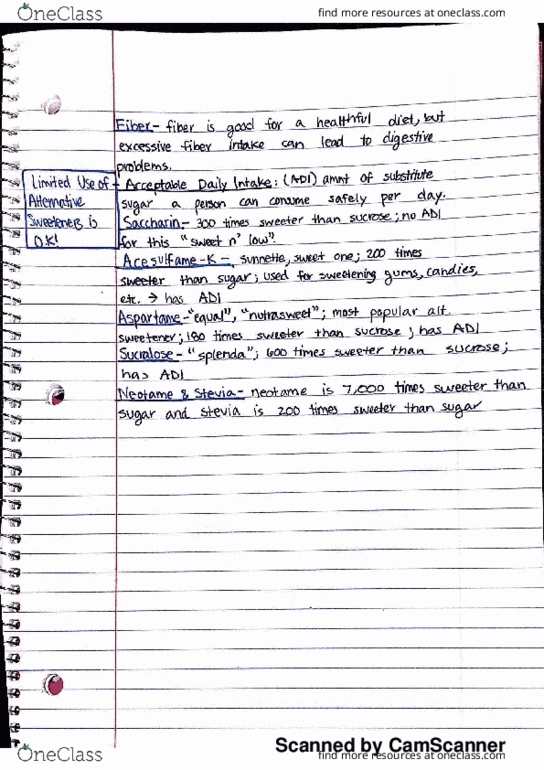 OneClass
find more resources at oneclass.com
Fiber- fiber is good for a healthful diet, but
excessive fiber intake can lead to digestive
problems.
Limited Use of
Alternative
Sweeteners is
O.K!
- Acceptable Daily Intake: (ADI) amnt of substitute
sugar a person can consume safely per day.
Saccharin- 300 times sweeter than sucrose; no ADI
for this "sweet n' low".
Acesulfame-K- sunnette, sweet one; 200 times
sweeter than sugar; used for sweetening gums, candies,
etc. → has ADI
Aspartame-"equal", "nutrasweet"; most popular alt.
sweetener; 180 times sweeter than sucrose; has ADI
Sucralose- "splenda"; 600 times sweeter than sucrose;
has ADI
Neotame & Stevia- neotame is 7,000 times sweeter than
sugar and stevia is 200 times sweeter than sugar
Scanned by CamScanner
OneClass
find more resources at oneclass.com